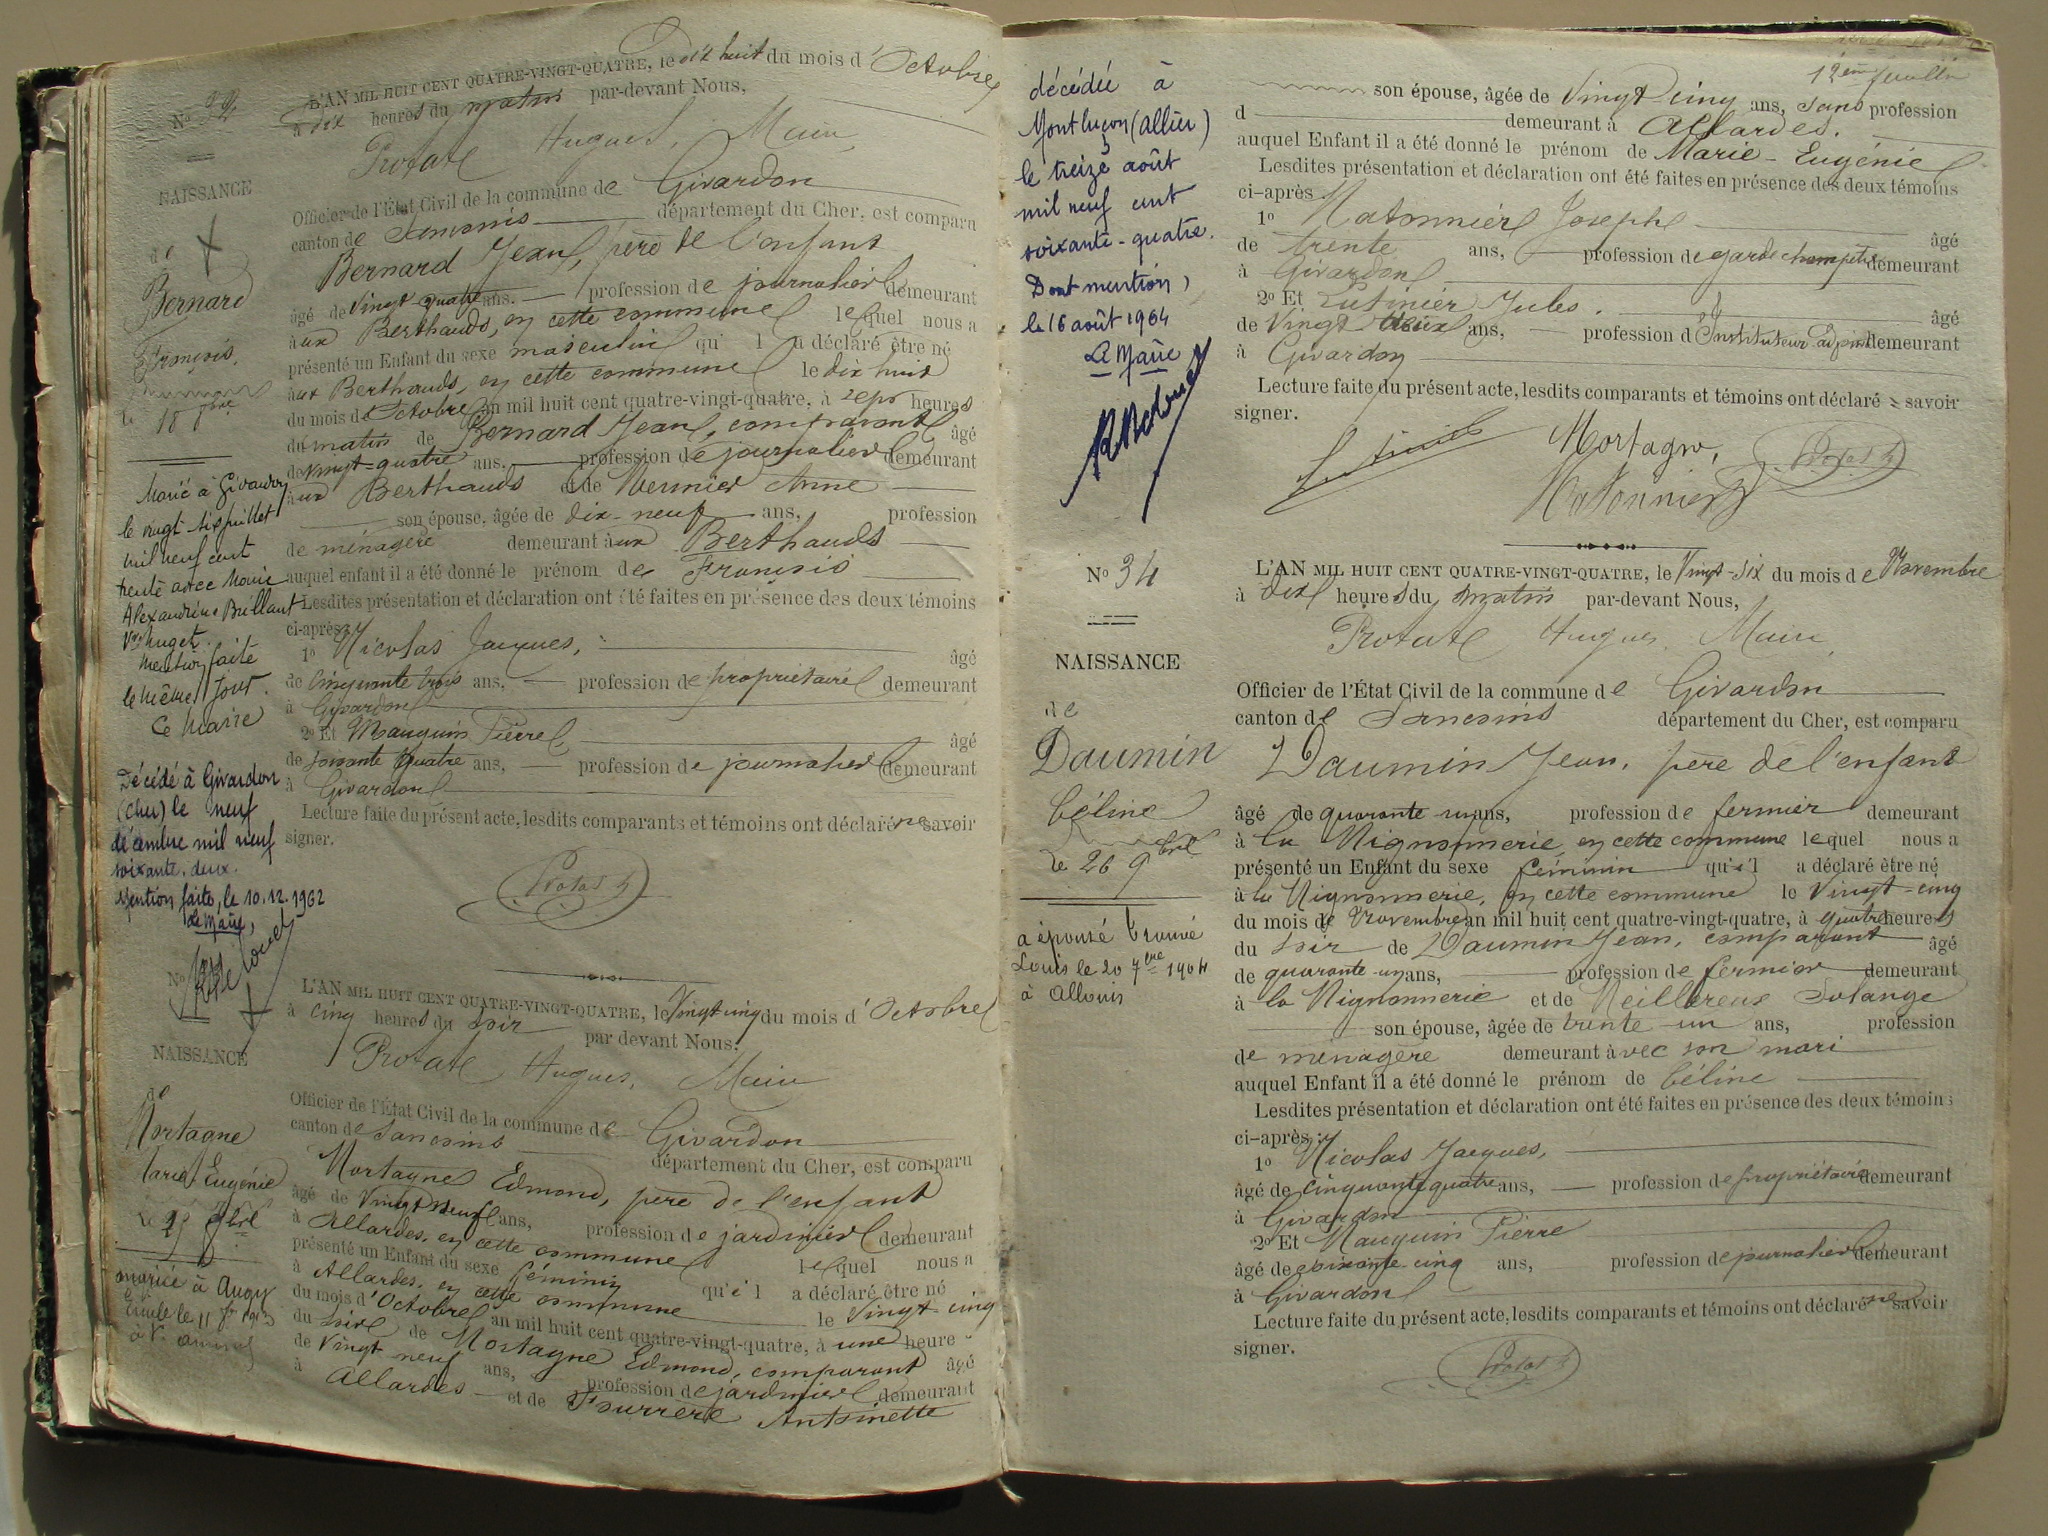 L'AN MIL HUIT CENT QUATRE-VINGT-QUATRE, le dix huit du mois d'Octobre
à dix heures du matin par-devant Nous,
Hugues, Maire,
Officier de l'État Civil de la commune de Givardon
canton de Sancoins département du Cher, est comparu
Bernard Jean, père de l'enfant
âgé de Vingt-quatre ans. profession de journalier demeurant
aux Berthauds, en cette commune lequel nous a
présenté un Enfant du sexe masculin qu'il a déclaré être né
aux Berthauds, en cette commune le dix huit
du mois de Octobre an mil huit cent quatre-vingt-quatre, à sept heures
du matin de Bernard Jean, comparant âgé
de vingt-quatre ans, profession de journalier demeurant
aux Berthauds et de Anne
son épouse, âgée de dix-neuf ans, profession
de ménagère demeurant aux Berthauds
auquel enfant il a été donné le prénom de François
Lesdites présentation et déclaration ont été faites en présence des deux témoins
ci-après:
1º Nicolas Jacques, âgé
de cinquante trois ans, profession de propriétaire demeurant
à Givardon
2º Et Mauguin Pierre, âgé
de soixante quatre ans, profession de journalier demeurant
à Givardon
Lecture faite du présent acte, lesdits comparants et témoins ont déclaré ne savoir
signer.
Nº 32
NAISSANCE
de
Bernard
François,
le 18 8bre
Marié à Givardon
le vingt six juillet
mil neuf cent
trente avec Marie
Alexandrine Brillant
Vve Auget.
Mention faite
le même jour.
Le Maire
Décédé à Givardon
(Cher) le neuf
décembre mil neuf
soixante-deux.
Mention faite, le 10.12.1962
Le Maire,
Nº
NAISSANCE
de
Mortagne
Marie-Eugénie
le 25 8bre
mariée à Augy
Emile le 11
L'AN MIL HUIT CENT QUATRE-VINGT-QUATRE, le Vingt cinq du mois d'Octobre
à cinq heures du soir par devant Nous,
Hugues, Maire
Officier de l'État Civil de la commune de Givardon
canton de Sancoins département du Cher, est comparu
Mortagne Edmond, père de l'enfant
âgé de Vingt neuf ans, profession de jardinier demeurant
à Allardes, en cette commune lequel nous a
présenté un Enfant du sexe féminin qu'il a déclaré être né
à Allardes, en cette commune le Vingt-cinq
du mois d'Octobre an mil huit cent quatre-vingt-quatre, à une heure
du soir de Mortagne Edmond, comparant âgé
de Vingt neuf ans, profession de jardinier demeurant
à Allardes et de Fourrere Antoinette
12ème feuille
son épouse, âgée de Vingt cinq ans, sans profession
d demeurant à Allardes.
auquel Enfant il a été donné le prénom de Marie-Eugénie
Lesdites présentation et déclaration ont été faites en présence des deux témoins
ci-après
1º Matonnière Joseph âgé
de trente ans, profession de garde champêtre demeurant
à Givardon
2º Et Lutinier Jules. âgé
de Vingt deux ans, profession d'Instituteur adjoint demeurant
à Givardon
Lecture faite du présent acte, lesdits comparants et témoins ont déclaré savoir
signer.
Mortagne,
Matonnière
décédée à
Montluçon (Allier)
le treize août
mil neuf cent
soixante-quatre.
Dont mention,
le 16 août 1964
Le Maire
Nº 34
NAISSANCE
de
Daumin
Céline
le 26 9bre
a épousé Trouvé
Louis le 20 7bre 1904
à Allouis
L'AN MIL HUIT CENT QUATRE-VINGT-QUATRE, le Vingt-six du mois de Novembre
à dix heures du matin par-devant Nous,
Hugues, Maire
Officier de l'État Civil de la commune de Givardon
canton de Sancoins département du Cher, est comparu
Daumin Jean, père de l'enfant
âgé de quarante un ans, profession de fermier demeurant
à la Vignonnerie, en cette commune lequel nous a
présenté un Enfant du sexe féminin qu'il a déclaré être né
à la Vignonnerie, en cette commune le Vingt-cinq
du mois de Novembre an mil huit cent quatre-vingt-quatre, à quatre heures
du soir de Daumin Jean, comparant âgé
de quarante-un ans, profession de fermier demeurant
à la Vignonnerie et de Solange
son épouse, âgée de trente-un ans, profession
de ménagère demeurant avec son mari
auquel Enfant il a été donné le prénom de Céline
Lesdites présentation et déclaration ont été faites en présence des deux témoins
ci-après:
1º Nicolas Jacques,
âgé de cinquante quatre ans, profession de propriétaire demeurant
à Givardon
2º Et Mauguin Pierre
âgé de soixante-cinq ans, profession de journalier demeurant
à Givardon
Lecture faite du présent acte, lesdits comparants et témoins ont déclaré ne savoir
signer.